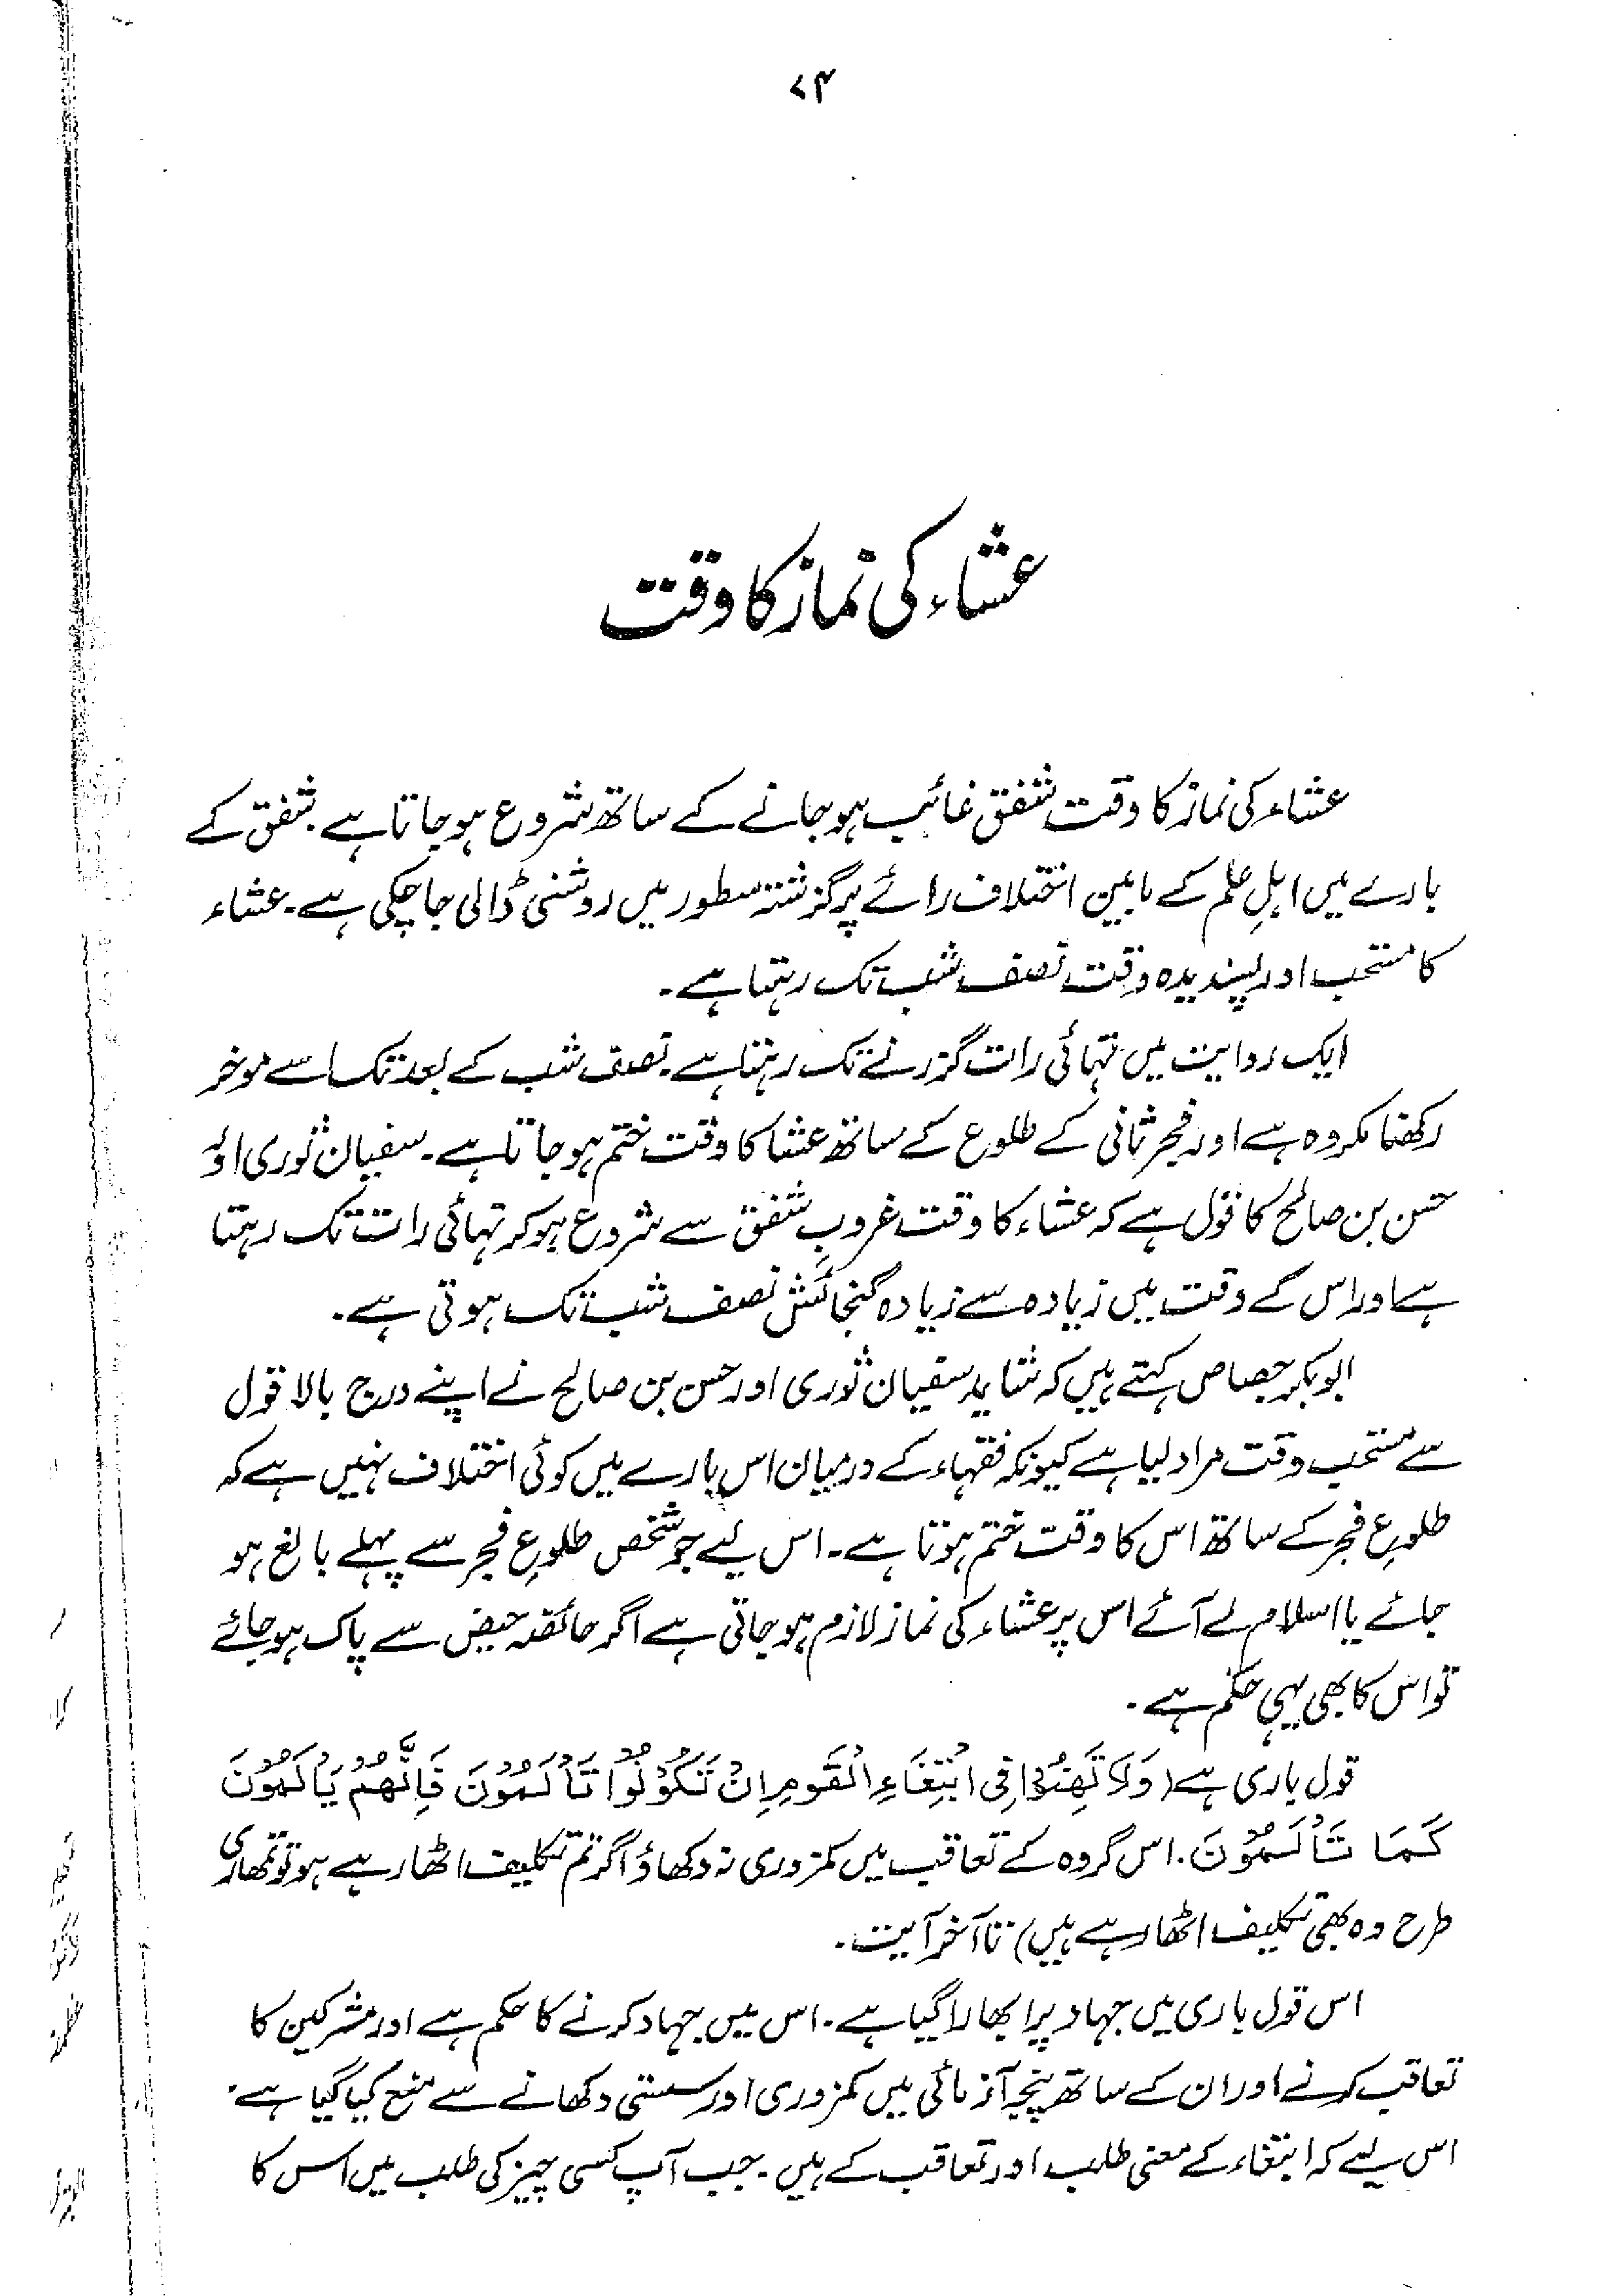 ۷۴
عشاء کی نماز کا وقت
عشاء کی نماز کا وقت شفق غائب ہو جانے کے ساتھ شروع ہو جاتا ہے۔ شفق کے
بارے میں اہلِ علم کے مابین اختلاف رائے پر گزشتہ سطور میں روشنی ڈالی جا چکی ہے۔ عشاء
کا مستحب اور پسندیدہ وقت نصف شب تک رہتا ہے۔
ایک روایت میں تہائی رات گزرنے تک رہتا ہے۔ نصف شب کے بعد تک اسے موخر
رکھنا مکروہ ہے اور فجر ثانی کے طلوع کے ساتھ عشا کا وقت ختم ہو جاتا ہے۔ سفیان ثوری اور
حسن بن صالح کا قول ہے کہ عشاء کا وقت غروبِ شفق سے شروع ہو کر تہائی رات تک رہتا
ہے اور اس کے وقت میں زیادہ سے زیادہ گنجائش نصف شب تک ہوتی ہے۔
ابوبکر جصاص کہتے ہیں کہ شاید سفیان ثوری اور حسن بن صالح نے اپنے درج بالا قول
سے مستحب وقت مراد لیا ہے کیونکہ فقہاء کے درمیان اس بارے میں کوئی اختلاف نہیں ہے کہ
طلوعِ فجر کے ساتھ اس کا وقت ختم ہوتا ہے۔ اس لیے جو شخص طلوعِ فجر سے پہلے بالغ ہو
جائے یا اسلام لے آئے اس پر عشاء کی نماز لازم ہو جاتی ہے اگر حائضہ حیض سے پاک ہو جائے
تو اس کا بھی یہی حکم ہے۔
قول باری ہے (وَلَا تَهِنُوْا فِی ابْتِغَاءِ الْقَوْمِ اِنْ تَكُوْنُوْا تَأْلَمُوْنَ فَاِنَّهُمْ يَأْلَمُوْنَ
كَمَا تَأْلَمُوْنَ۔ اس گروہ کے تعاقب میں کمزوری نہ دکھاؤ اگر تم تکلیف اٹھا رہے ہو تو تمھاری
طرح وہ بھی تکلیف اٹھا رہے ہیں) تا آخر آیت۔
اس قول باری میں جہاد پر ابھارا گیا ہے۔ اس میں جہاد کرنے کا حکم ہے اور مشرکین کا
تعاقب کرنے اور ان کے ساتھ پنجہ آزمائی میں کمزوری اور سستی دکھانے سے منع کیا گیا ہے۔
اس لیے کہ ابتغاء کے معنی طلب اور تعاقب کے ہیں۔ جب آپ کسی چیز کی طلب میں اس کا